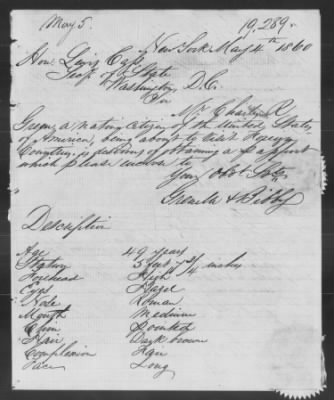 May 5.
19,289
New York May 4th 1860
Hon. Lewis Cass
Secy of State
Washington, D.C.
Sir
Mr. Charles R.
Greene a native citizen of the United States
of America, being about to visit Foreign
Countries, is desirous of obtaining a passport
which please inclose to
Your Obt Svts
& Bibby
Description
Age 49 years
Stature 5 feet inches
Forehead High
Eyes Hazel
Nose Roman
Mouth Medium
Chin Pointed
Hair Dark brown
Complexion Fair
Face Long